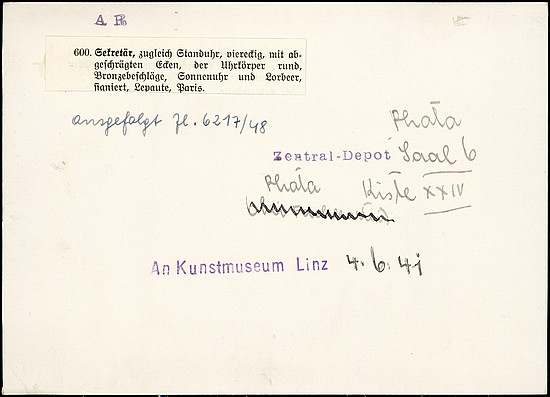 AR
600. Sekretär, zugleich Standuhr, viereckig, mit ab-
geschrägten Ecken, der Uhrkörper rund,
Bronzebeschläge, Sonnenuhr und Lorbeer,
signiert, Lepaute, Paris.
ausgefolgt Zl. 6217/48
Zentral-Depot Saal 6
Kiste XXIV
An Kunstmuseum Linz 4.6.41